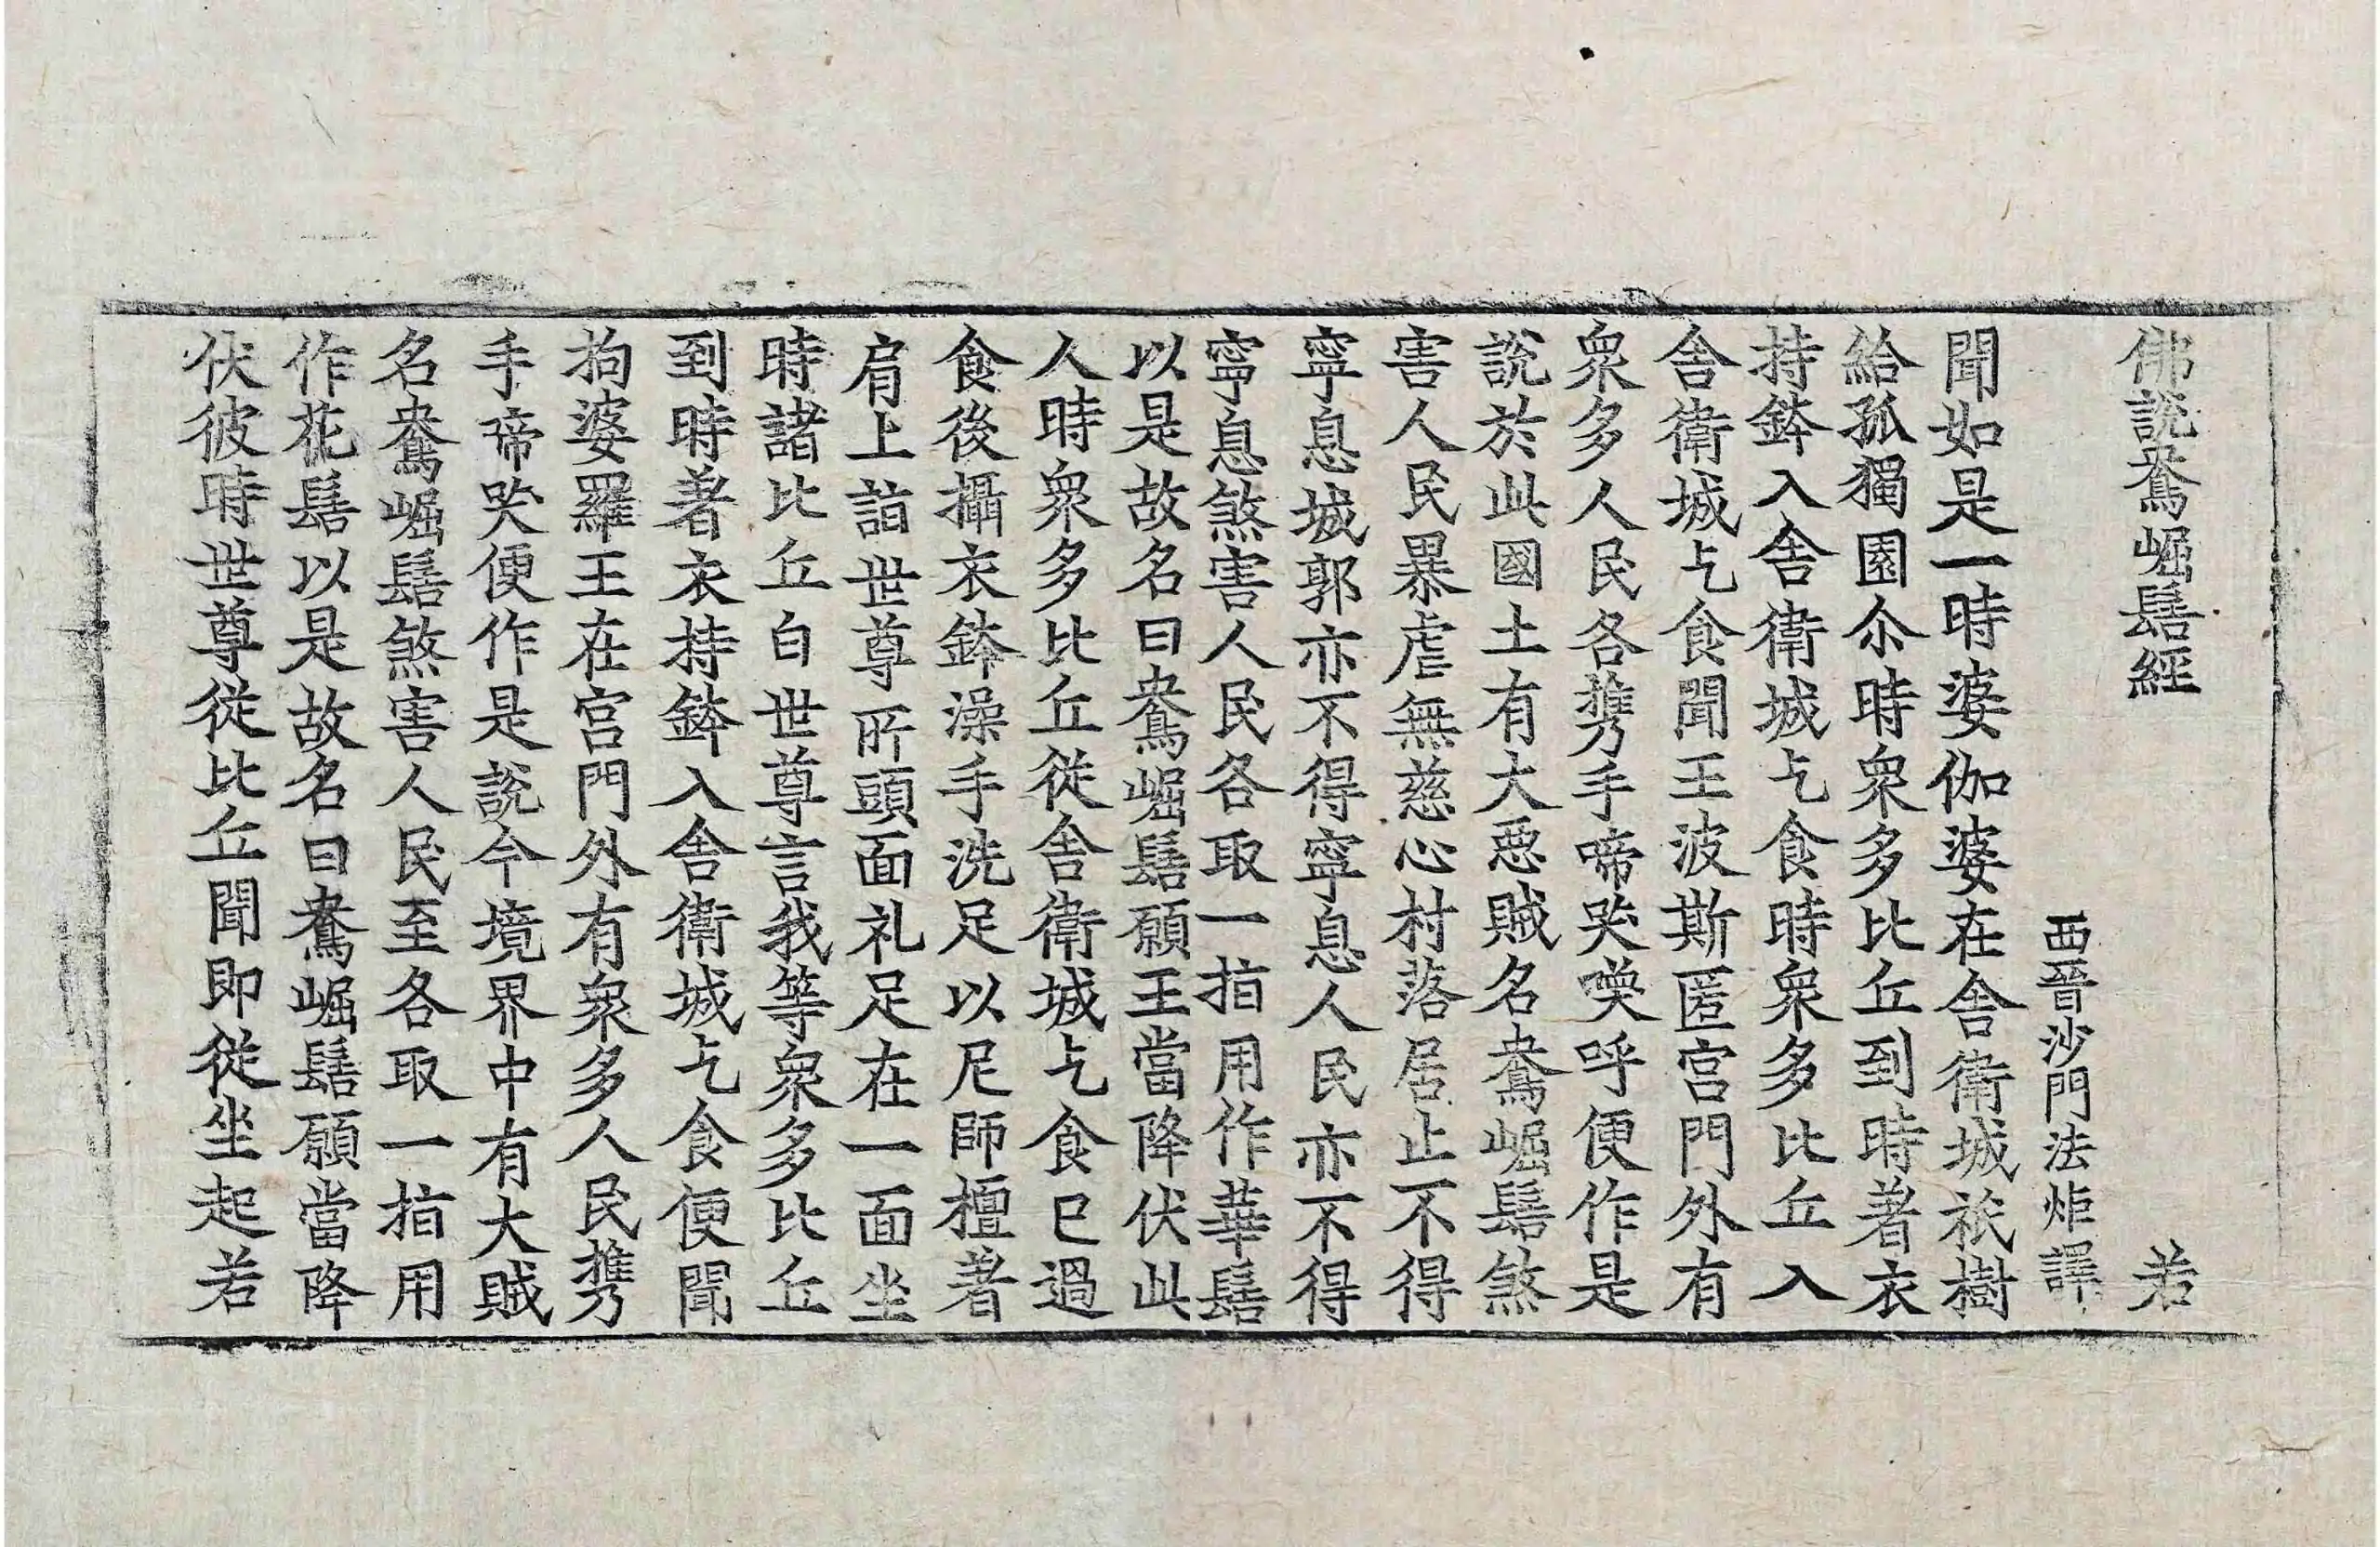 佛說鴦崛髻經　若
西晉沙門法炬譯
聞如是一時婆伽婆在舍衛城祇樹
給孤獨園尒時衆多比丘到時著衣
持鉢入舍衛城乞食時衆多比丘入
舍衛城乞食聞王波斯匿宮門外有
衆多人民各攜手啼哭喚呼便作是
說於此國土有大惡賊名鴦崛髻煞
害人民暴虐無慈心村落居止不得
寧息城郭亦不得寧息人民亦不得
寧息煞害人民各取一指用作華髻
以是故名曰鴦崛髻願王當降伏此
人時衆多比丘從舍衛城乞食已過
食後攝衣鉢澡手洗足以尼師檀著
肩上詣世尊所頭面礼足在一面坐
時諸比丘白世尊言我等衆多比丘
到時著衣持鉢入舍衛城乞食便聞
拘婆羅王在宮門外有衆多人民攜
手啼哭便作是說今境界中有大賊
名鴦崛髻煞害人民至各取一指用
作花髻以是故名曰鴦崛髻願當降
伏彼時世尊從比丘聞即從坐起若